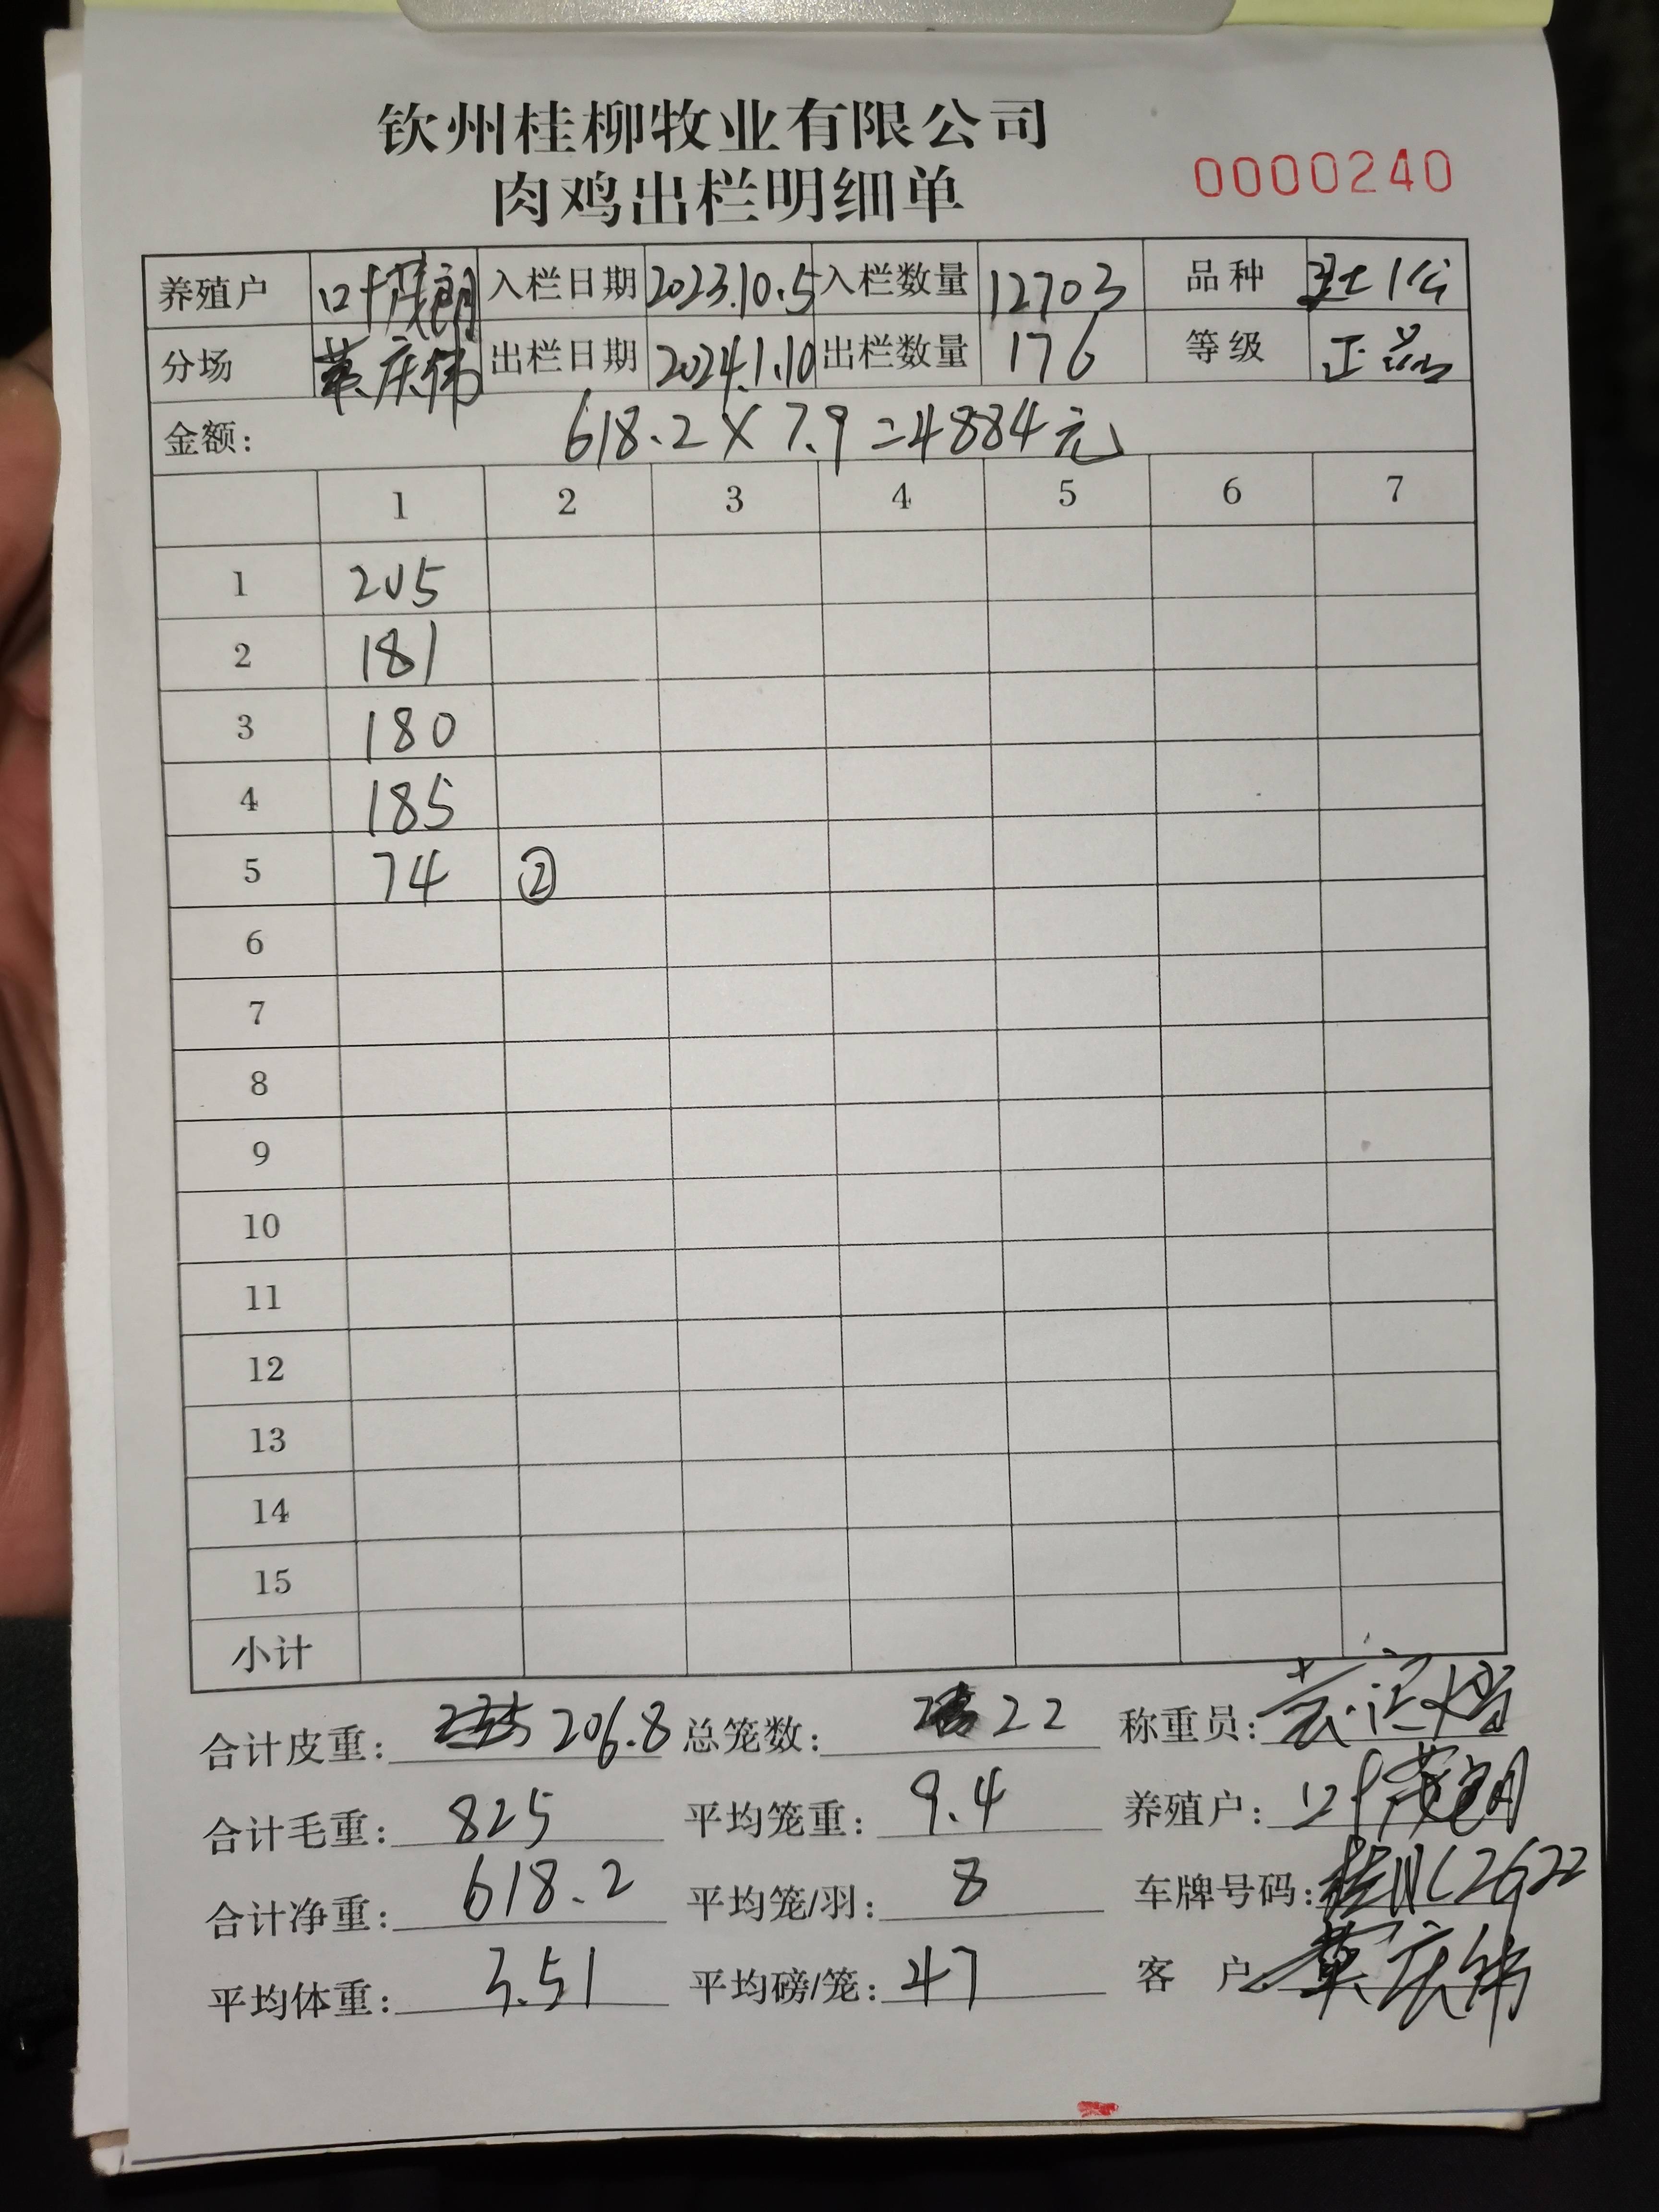 钦州桂柳牧业有限公司
肉鸡出栏明细单
0000240
养殖户 叶茂朗 入栏日期 2023.10.5 入栏数量 12703 品种
分场 莫庆伟 出栏日期 2024.1.10 出栏数量 176 等级 正品
金额: 618.2×7.9=4884元
1 2 3 4 5 6 7
1 205
2 181
3 180
4 185
5 74 ②
6
7
8
9
10
11
12
13
14
15
小计
合计皮重: 206.8 总笼数: 22 称重员:
合计毛重: 825 平均笼重: 9.4 养殖户: 叶茂朗
合计净重: 618.2 平均笼/羽: 8 车牌号码: 桂NC2622
平均体重: 3.51 平均磅/笼: 47 客户: 莫庆伟